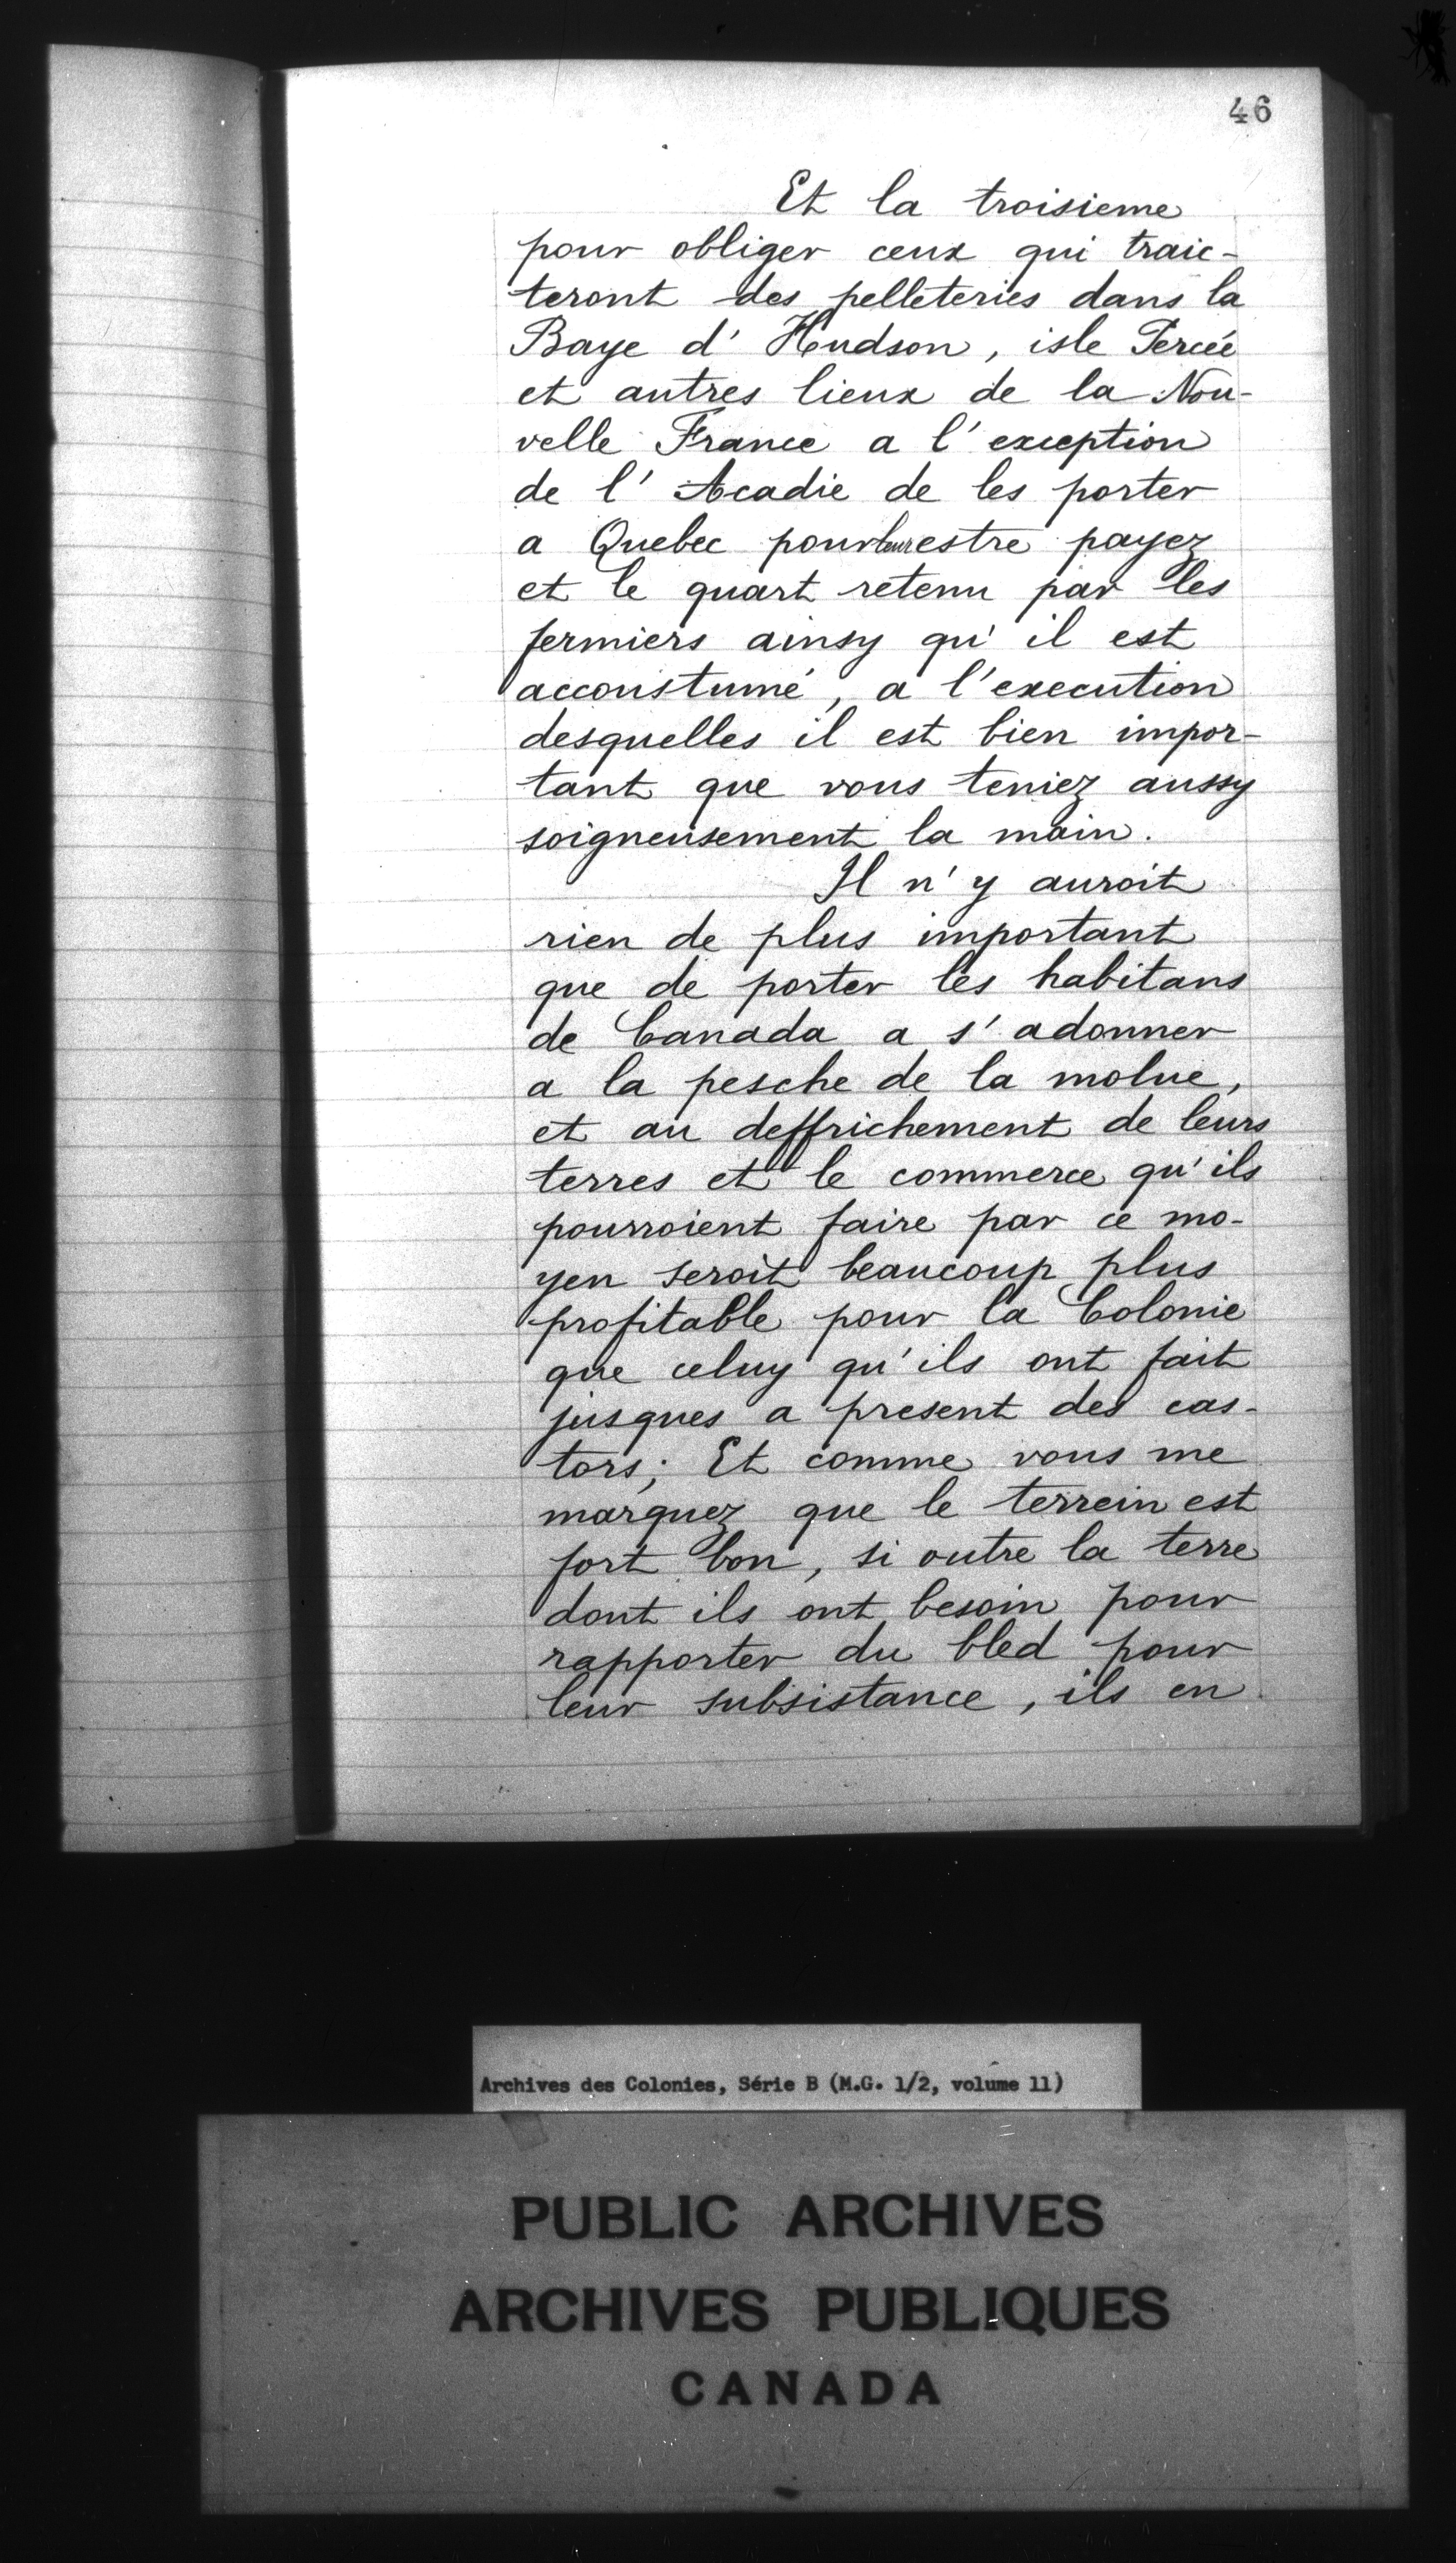 46
Et la troisieme
pour obliger ceux qui traic-
teront des pelleteries dans la
Baye d' Hudson, isle Percée
et autres lieux de la Nou-
velle France a l' exception
de l' Acadie de les porter
a Quebec pour leur estre payez
et le quart retenu par les
fermiers ainsy qu' il est
accoustumé, a l'execution
desquelles il est bien impor-
tant que vous teniez aussy
soigneusement la main.
Il n' y auroit
rien de plus important
que de porter les habitans
de Canada a s' adonner
a la pesche de la molue,
et au deffrichement de leurs
terres et le commerce qu' ils
pourroient faire par ce mo-
yen seroit beaucoup plus
profitable pour la Colonie
que celuy qu' ils ont fait
jusques a present des cas-
tors; Et comme vous me
marquez que le terrein est
fort bon, si outre la terre
dont ils ont besoin pour
rapporter du bled pour
leur subsistance, ils en
Archives des Colonies, Série B (M.G. 1/2, volume 11)
PUBLIC ARCHIVES
ARCHIVES PUBLIQUES
CANADA